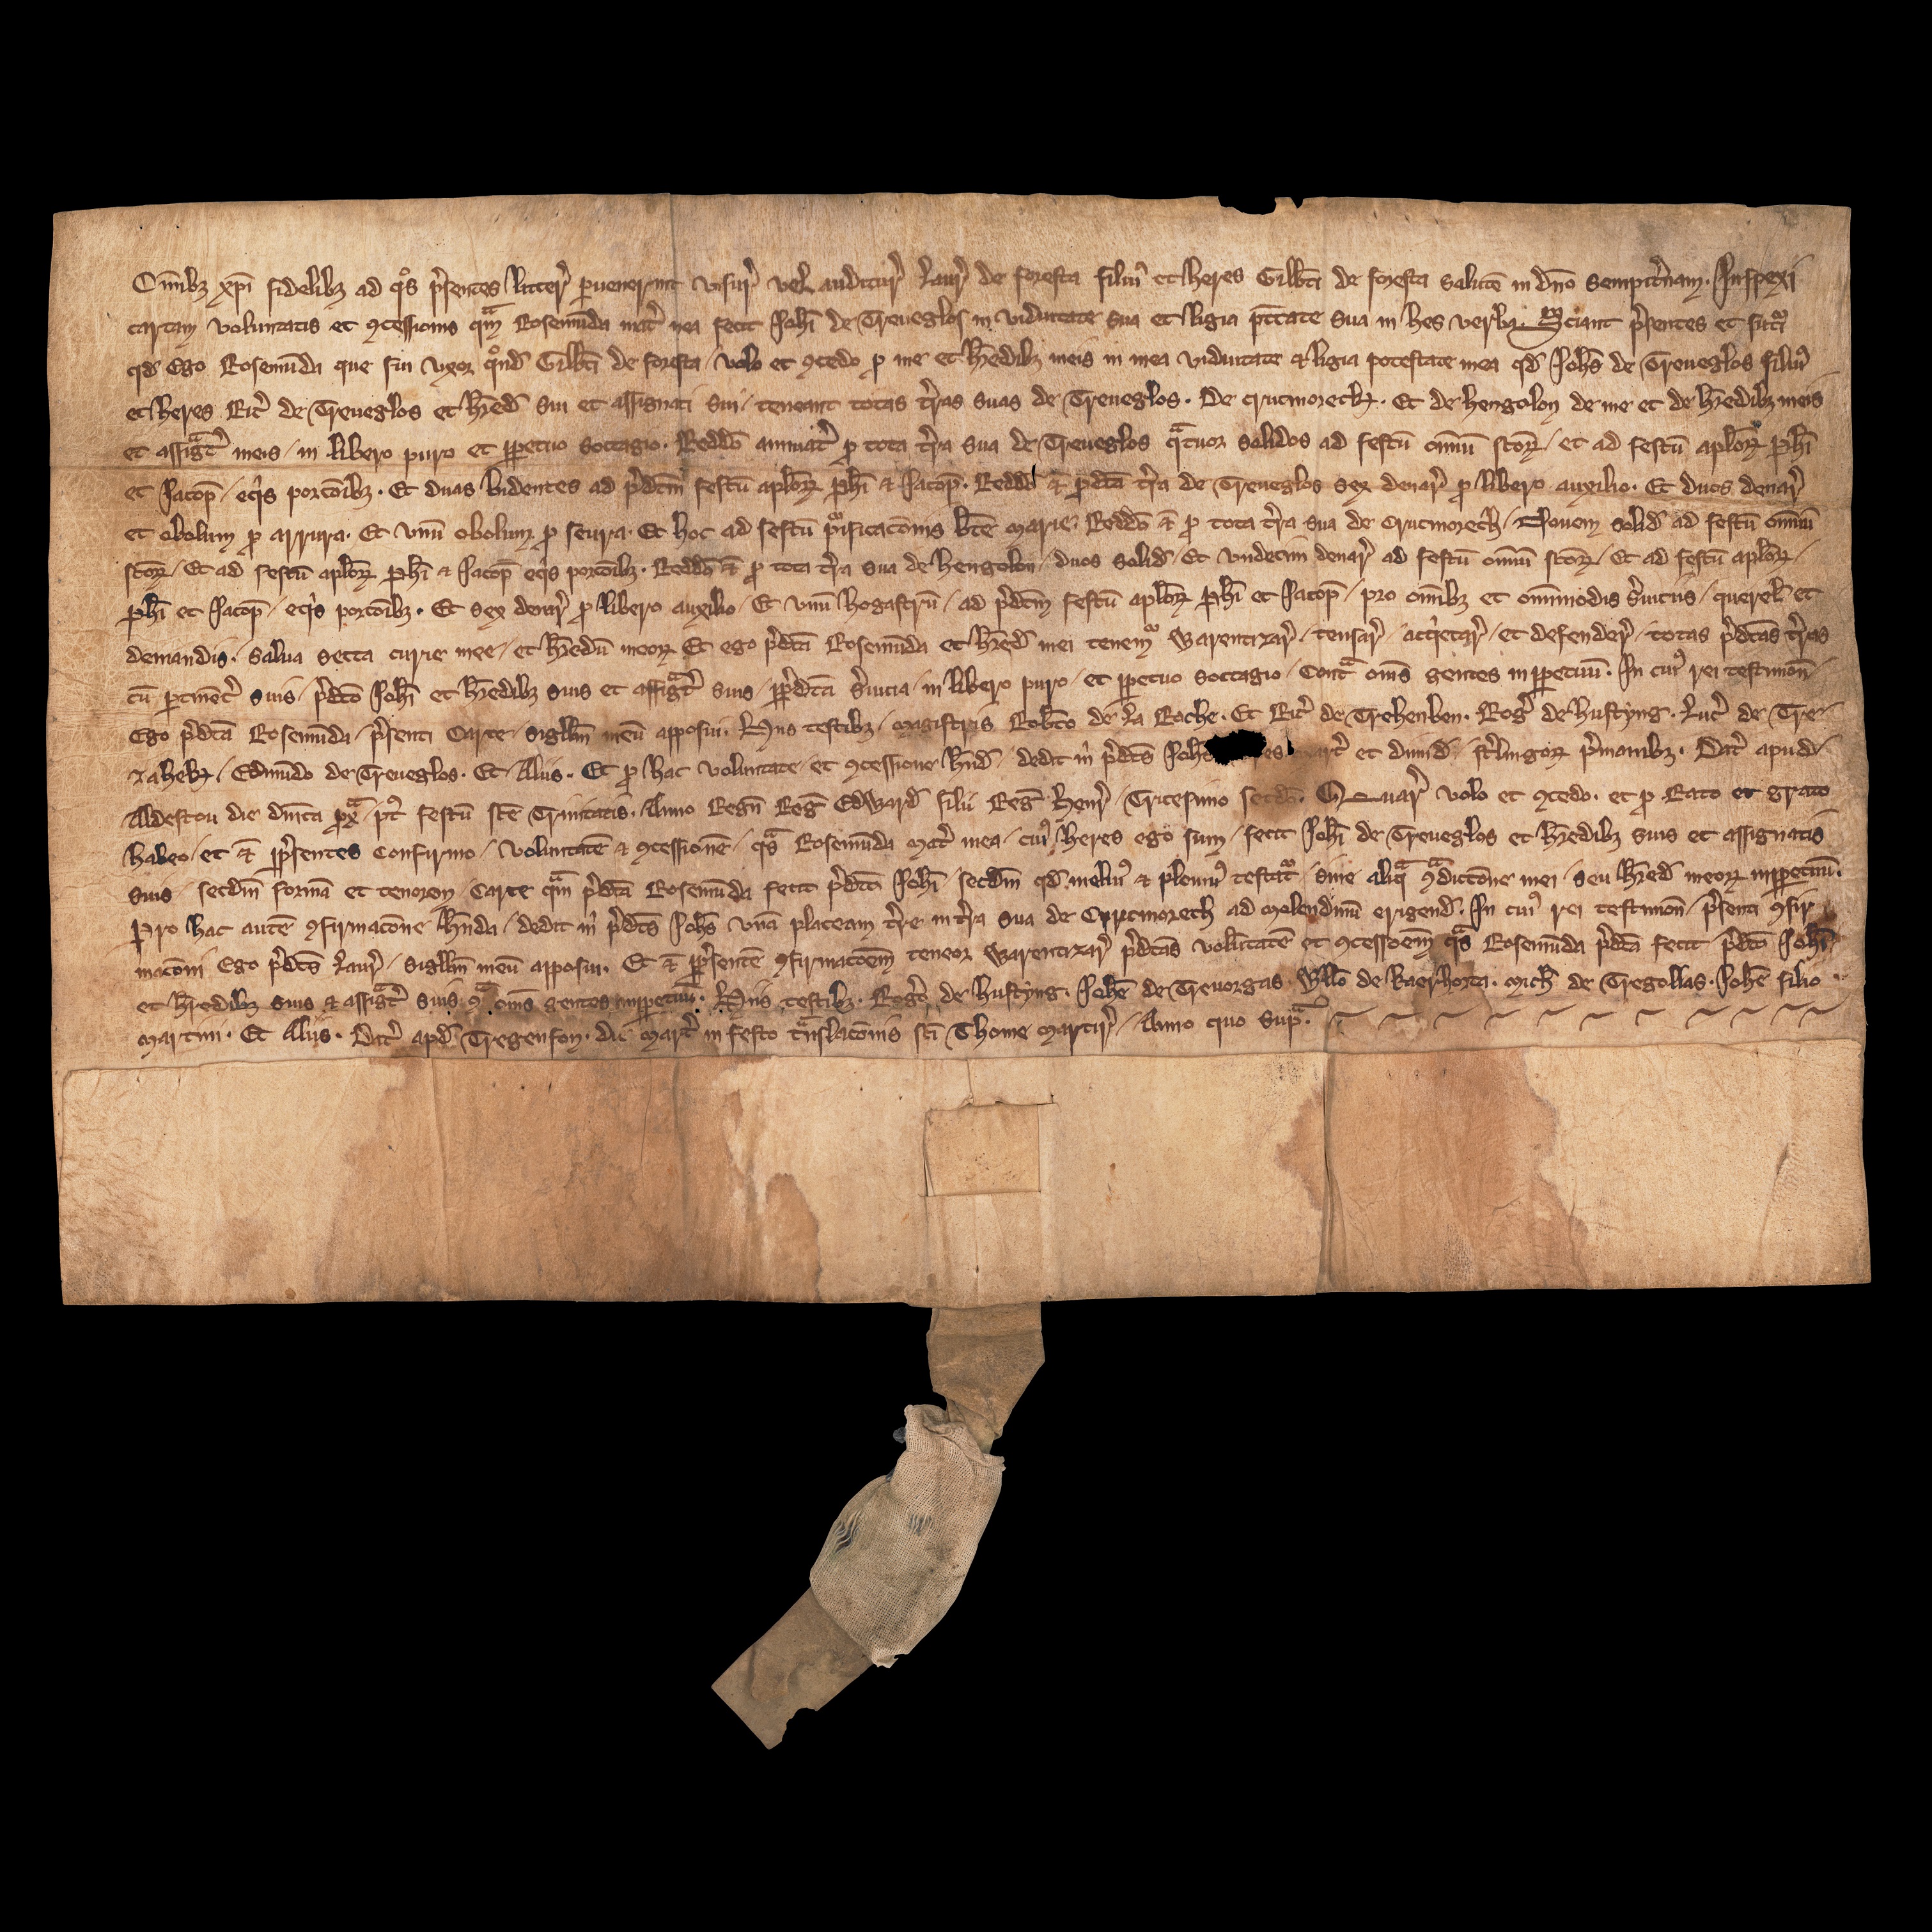 Om̄ibꝫ xp̄i fidelibꝫ ad qͦs p̾sentes litter̾ ꝑuenerint visur̾ vel auditur̾ Laur̾ de foresta filiꝰ et heres Gilb̾ti de foresta salutē in dn̄o sempit̾nam. Inspexi
cartam voluntatis et ꝯcessionis qᵃm Rosemūda mat̾ mea fecit Joh̄i de Treueglos in viduitate sua et ligia ptt̄ate sua in hec verba. Sciant p̾sentes et futᵘi
qd̄ Ego Rosemūda que fui vxor qͦnd̄ Gilb̾ti de foresta / volo et ꝯcedo ꝑ me et h̾edibꝫ meis in mea viduitate ⁊ ligia potestate mea qd̄ Joh̄s de Treueglos filiꝰ
et heres Ric̾ de Treueglos et h̾ed̄ sui et assignati sui / teneant totas t̾ras suas de Treueglos. De crucmorech. Et de hengolon de me et de h̾edibꝫ meis
et assigᵃt̾ meis / in libero puro et ꝑpetuo soccagio. Reddō annuat̾ ꝓ tota t̾ra sua de Treueglos qᵃtuor solidos ad festū om̄iū sc̄oꝝ / et ad festū apl̄oꝝ ph̄i
et Jacop̄ / eqⁱs porc̄oibꝫ. Et duas bidentes ad p̾dc̄m festū apl̄oꝝ ph̄i ⁊ Jacop̄. Reddō ⁊̄ ꝓ dc̄ā t̾ra de Treueglos sex denar̾ ꝓ libero auxilio. Et duos denar̾
et obolum ꝓ arrura. Et vnū obolum ꝓ seura. Et hoc ad festū pᵘificac̄onis bt̄e marie. Reddō ⁊̄ ꝓ tota t̾ra sua de Crucmorech / Nouem solid̄ ad festū om̄iū
sc̄oꝝ / Et ad festū apl̄oꝝ ph̄i ⁊ Jacop̄ eqⁱs porc̄oibꝫ. Reddō ⁊̄ ꝓ tota t̾ra sua de hengolon / duos solid̄ / Et vndecim denar̾ ad festū om̄iū sc̄oꝝ / Et ad festū apl̄oꝝ /
ph̄i et Jacop̄ / eqⁱs porc̄oibꝫ. Et sex denar̾ ꝓ libero auxilio / Et vnū hogastrū / ad p̾dc̄m festū apl̄oꝝ ph̄i et Jacop̄ / pro om̄ibꝫ et om̄imodis s̾uiciis / querel̄ et
demandis. Salua secta curie mee / et h̾edū meoꝝ Et ego p̾dc̄ā Rosemūda et h̾ed̄ mei tenemᵘ Warentizar̾ / tensar̾ / acqⁱetar̾ / et defender̾ / totas p̾dc̄as t̾ras
cū ꝑtinēt̾ suis / p̾dc̄o Joh̄i et h̾edibꝫ suis et assigᵃt̾ suis / ꝑ p̾dc̄ā s̾uicia / in libero puro / et ꝑpetuo soccagio / Contᵃ om̄s gentes inꝑpetuū. In cuiꝰ rei testimon̄ /
Ego p̾dc̄ā Rosemūda / p̾senti Carte / sigillm̄ meū apposui. Hiis testibꝫ / magistris Rob̾to de La Roche. Et Ric̾ de Trehenben. Rog̾ de hustyng. Luc̾ de Tre-
zahek / Edmūdo de Treueglos. Et Aliis. Et ꝓ hac voluntate / et ꝯcessione h̄nd̄ / dedit m̄ p̾dc̄s Joh̄s marc̾ et dimid̄ / st̾lingoꝝ p̾ manibꝫ. Dat̾ apud /
Aldestou die dn̄ica pxᵃ / pt̾ festū sc̄e Trinitatis. Anno Regn̄ Reg̾ Edward̄ filii Reg̾ Henr̾ / Tricesimo scd̄o. Quar̾ volo et ꝯcedo. et ꝓ Rato et grato
habeo / et ⁊̄ ꝑ p̾sentes Confirmo / Voluntatē ⁊ ꝯcessionē / qᵃs Rosemūda Mat̾ mea / cuiꝰ heres ego sum / fecit Joh̄i de Treueglos et h̾edibꝫ suis et assignatis
suis / secdm̄ formā et tenorem Carte qᵃm p̾dc̄ā Rosemūda fecit p̾dc̄o Joh̄i / secdm̄ qd̄ meliꝰ ⁊ pleniꝰ testatᵘ / sine aliqᵃ ꝯᵃdicc̄one mei / seu h̾ed̄ meoꝝ inꝑpetuū.
Pro hac autē ꝯfirmac̄one h̄nda / dedit m̄ p̾dc̄s Joh̄s vnā placeam t̾re in t̾ra sua de Crucmorech ad molendinū erigend̄. In cuiꝰ rei testimon̄ / p̾senti ꝯfir-
mac̄oni Ego p̾dc̄s Laur̾ / sigillm̄ meū apposui. Et ⁊̄ ꝑ p̾sentē ꝯfirmac̄oem̄ teneor Warentizar̾ p̾dc̄as volūtatē et ꝯcessoem̄ qᵃs Rosemūda p̾dc̄ā fecit p̾dc̄o Joh̄i /
et h̾edibꝫ suis ⁊ assigᵃt̾ suis ꝯᵃ om̄s gentes inꝑpetuū. Hiis testibꝫ. Rog̾o de hustyng. Joh̄e de Treuorgas. Wll̄o de kaerhorta. Mich̄ de Tregollas. Joh̄e filio
Martini. Et Aliis. Dat̾ apd̄ Tregenson. die Mart̾ in festo tᵃnslac̄onis sc̄i Thome Martir̾ / Anno quo supᵃ.